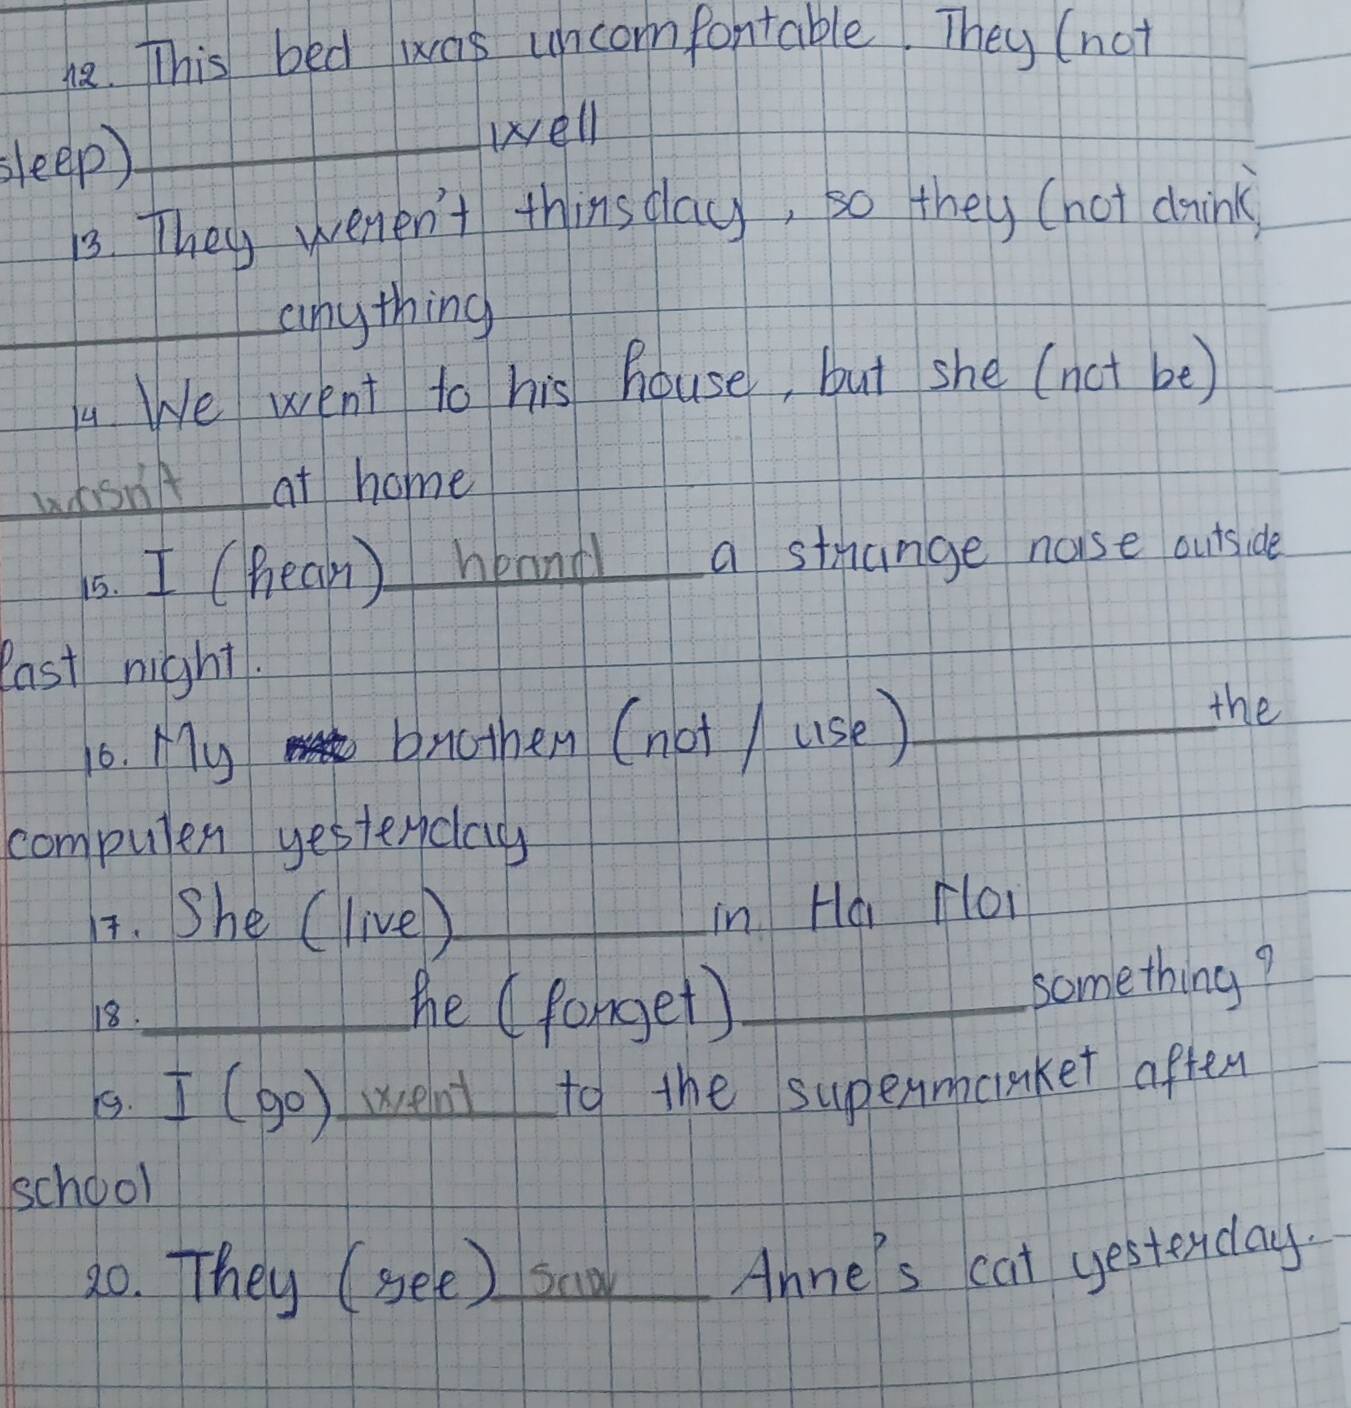 12. This bed was uncomfortable. They (not
sleep) well
13. They weren't thirsday, so they (not drink)
anything
14 We went to his house, but she (not be)
wasn't at home
15. I (hear) heard a strange noise outside
last night.
16. My brother (not / use) the
computer yesterday
17. She (live) in Ha Noi
18. he (forget) something?
19. I (go) went to the supermarket after
school
20. They (see) saw Anne's cat yesterday.